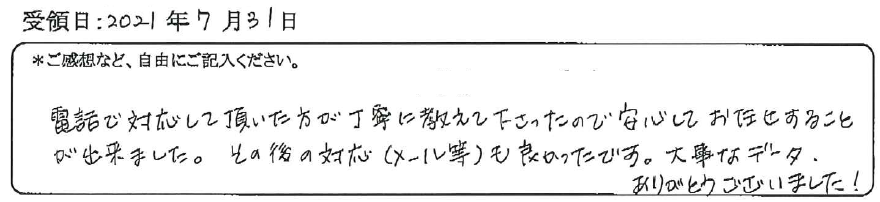 受領日:2021年7月31日
*ご感想など、自由にご記入ください。
電話で対応して頂いた方が丁寧に教えて下さったので安心してお任せすること
が出来ました。その後の対応(メール等)も良かったです。大事なデータ.
ありがとうございました!